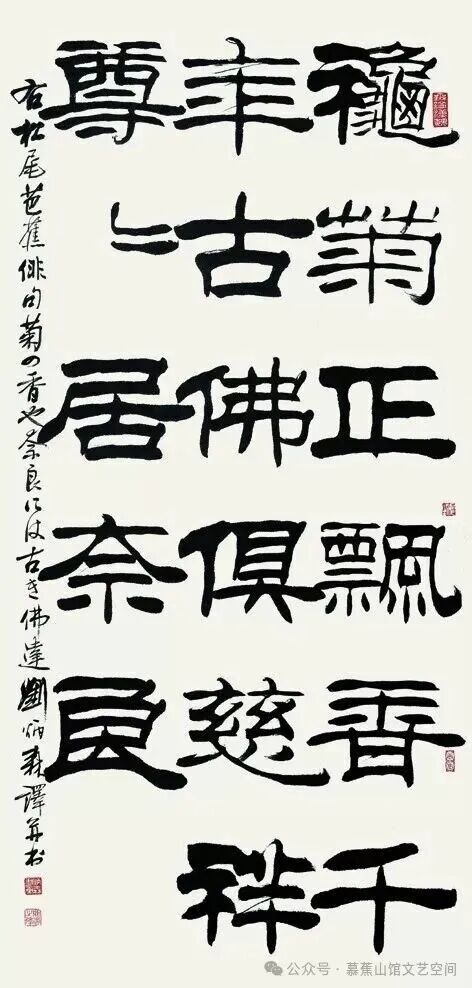 龝菊正飄香千
年古佛俱慈祥
尊〻居奈良
右松尾芭蕉俳句菊の香や奈良には古き佛達劉炳森譯并书
公众号 · 慕蕉山馆文艺空间